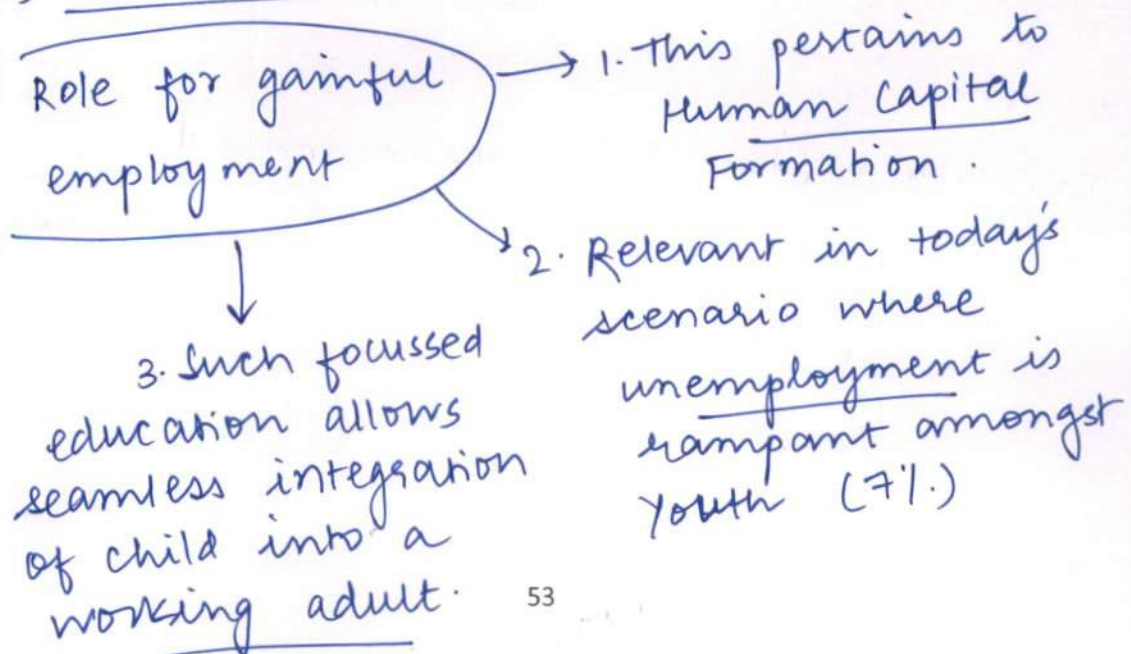 Role for gainful
employment
1. This pertains to
Human Capital
Formation.
2. Relevant in today's
scenario where
unemployment is
rampant amongst
Youth (7%.)
3. Such focussed
education allows
seamless integration
of child into a
working adult.
53